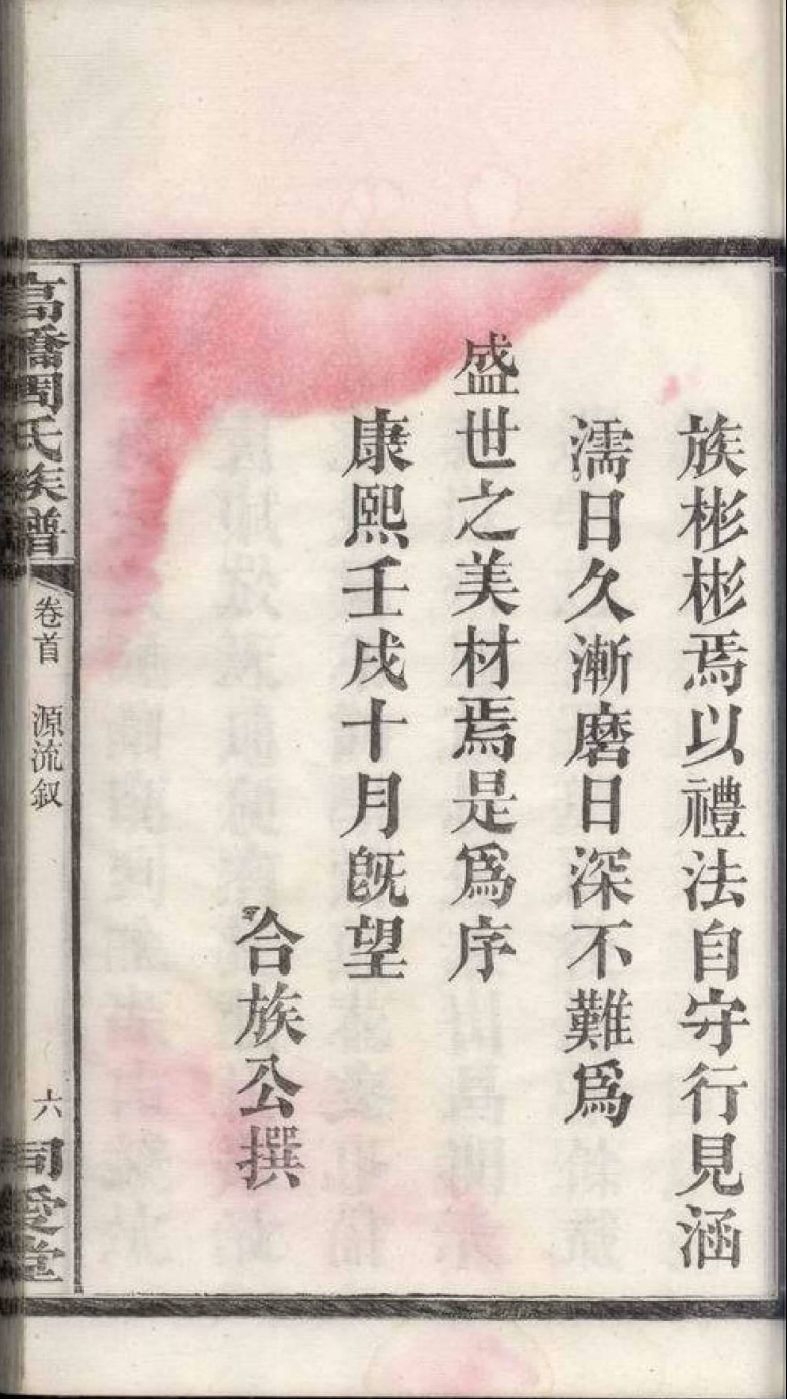 族彬彬焉以禮法自守行見涵
濡日久漸磨日深不難爲
盛世之美材焉是爲序
康熙壬戌十月旣望
合族公撰
高橋周氏族譜
卷首 源流叙
六
同愛堂